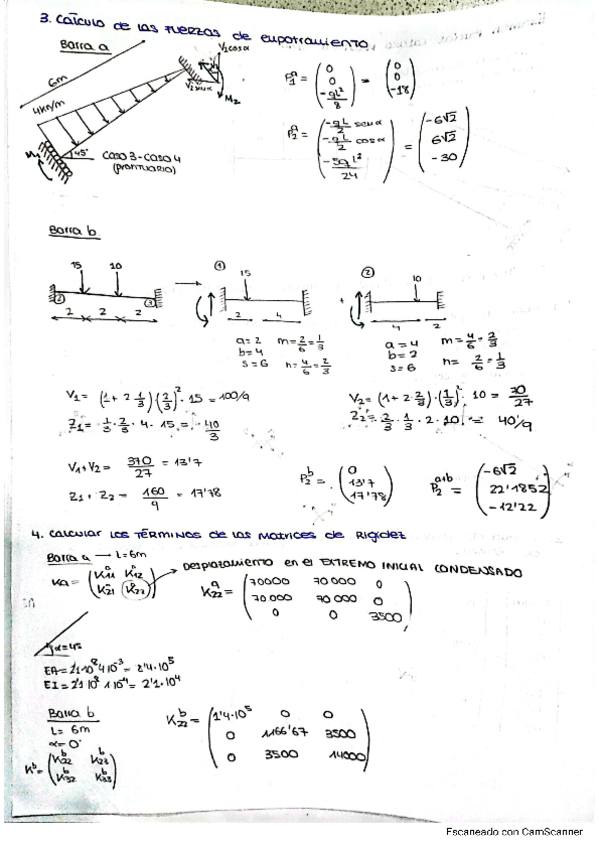 3. Cálculo de las fuerzas de empotramiento
Barra a
V2cosα
V2senα
M2
6m
4kN/m
45°
M1
CASO 3-CASO 4
(PRONTUARIO)
P1^a = (0 0 -qL²/8) = (0 0 -18)
P2^a = (-qL/2 senα -qL/2 cosα -5qL²/24) = (-6√2 6√2 -30)
Barra b
15 10
2 3
2 2 2
① 15
2 4
a=2 m=2/6=1/3
b=4
s=6 n=4/6=2/3
+
② 10
4 2
a=4 m=4/6=2/3
b=2
s=6 n=2/6=1/3
V1= (1+2 1/3)(2/3)²·15 = 100/9
Z1= 1/3·2/3·4·15 = 40/3
V2=(1+2·2/3)·(1/3)²·10 = 70/27
Z2= 2/3·1/3·2·10 = 40/9
V1+V2 = 370/27 = 13'7
Z1+Z2 = 160/9 = 17'78
P2^b = (0 13'7 17'78)
P2^a+b = (-6√2 22'1852 -12'22)
4. Calcular los términos de las matrices de rigidez
Barra a → L=6m
Ka = (K11^a K12^a K21^a K22^a)
DESPLAZAMIENTO EN EL EXTREMO INICIAL CONDENSADO
K22^a = (70000 70000 0 70000 70000 0 0 0 3500)
α=45
EA = 2'1·10^8 4·10^-3 = 2'4·10^5
EI = 2'1·10^8 1·10^-4 = 2'1·10^4
Barra b
L= 6m
α=0°
K^b = (K22^b K23^b K32^b K33^b)
K22^b = (1'4·10^5 0 0 0 1166'67 3500 0 3500 14000)
Escaneado con CamScanner